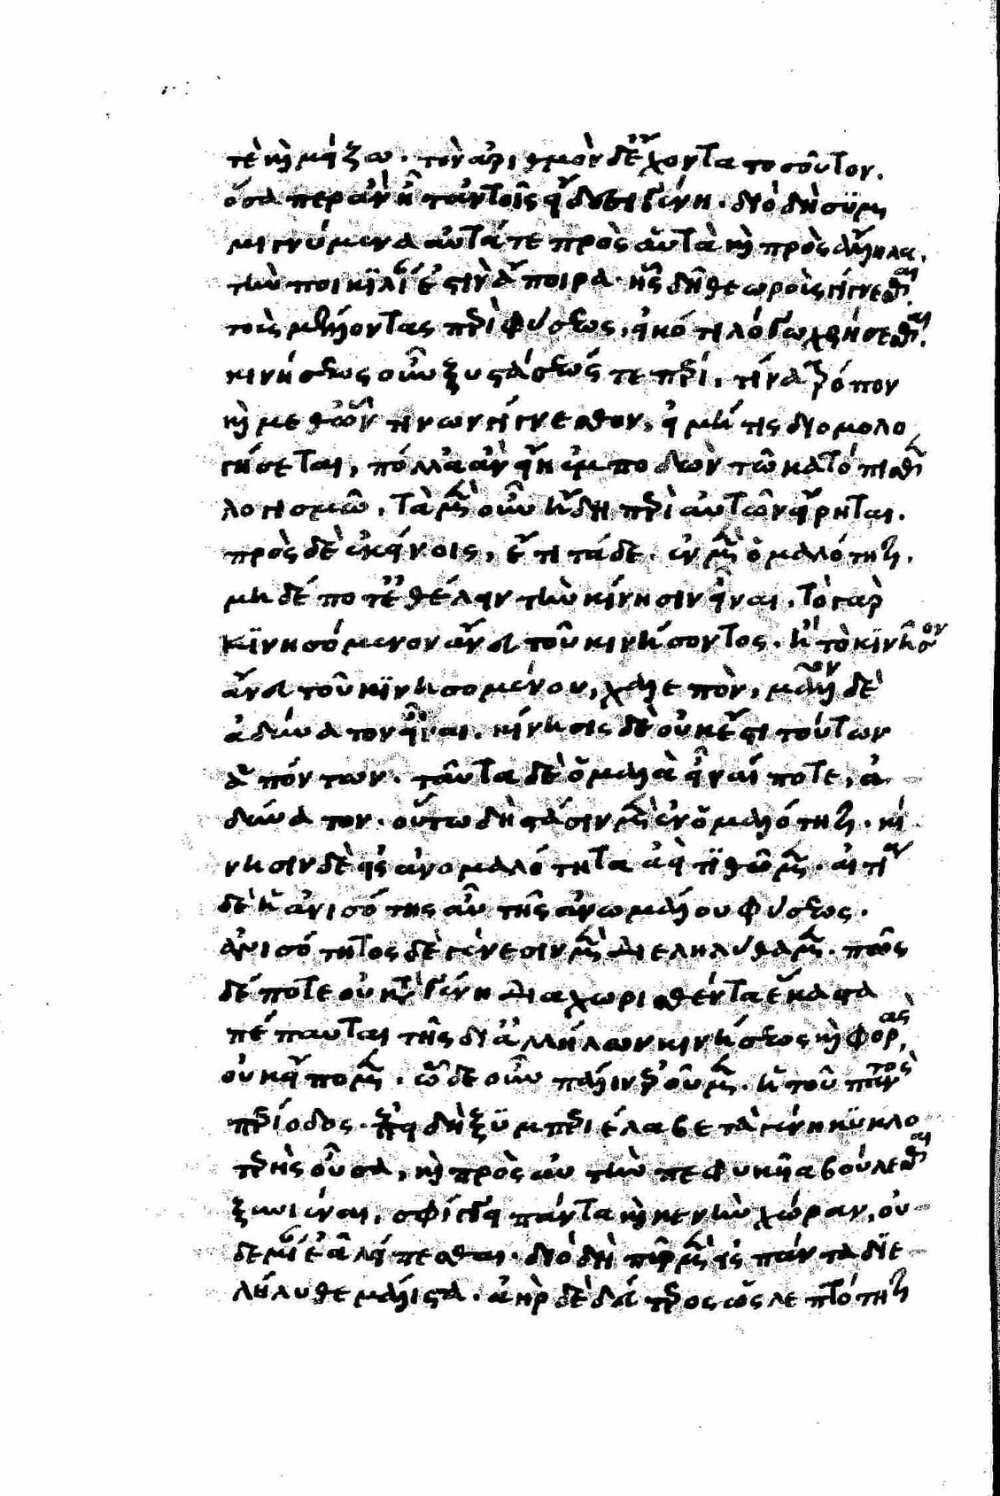 τὲ καὶ μείζω. τὸν ἀριθμὸν δὲ ἔχοντα τοσοῦτον.
ὅσα περ ἂν ᾖ τἀν τοῖς εἴδεσι γένη. διὸ δὴ συμ
μιγνύμενα αὐτά τε πρὸς αὑτὰ καὶ πρὸς ἄλληλα,
τὴν ποικιλίαν ἐστὶν ἄπειρα. ἧς δὴ θεωροὺς γίγνεσθαι
τοὺς μέλλοντας περὶ φύσεως, εἰκότι λόγῳ χρήσεσθαι.
κινήσεως οὖν ξυστάσεώς τε πέρι, τίνα τρόπον
καὶ μεθ' ὧν τινων γίγνεσθον, εἰ μή τις διομολο
γήσεται, πόλλ' ἂν εἴη ἐμποδὼν τῷ κατόπισθεν
λογισμῷ. τὰ μὲν οὖν ἤδη περὶ αὐτῶν εἴρηται.
πρὸς δὲ ἐκείνοις, ἔτι τάδε. ἐν μὲν ὁμαλότητι,
μηδέποτε ἐθέλειν τὴν κίνησιν εἶναι. τὸ γὰρ
κινησόμενον ἄνευ τοῦ κινήσοντος. ἢ τὸ κινῆσον
ἄνευ τοῦ κινησομένου, χαλεπὸν, μᾶλλον δὲ
ἀδύνατον εἶναι. κίνησις δὲ οὐκ ἔστι τούτων
ἀπόντων. ταῦτα δὲ ὁμαλὰ εἶναί ποτε, ἀ
δύνατον. οὕτω δὴ στάσιν μὲν ἐν ὁμαλότητι. κί
νησιν δὲ εἰς ἀνομαλότητα ἀεὶ τιθῶμεν. αἰτία
δὲ ἡ ἀνισότης αὖ τῆς ἀνωμάλου φύσεως.
ἀνισότητος δὲ γένεσιν μὲν διεληλύθαμεν. πῶς
δέ ποτε οὐ κατὰ γένη διαχωρισθέντα ἕκαστα
πέπαυται τῆς δι' ἀλλήλων κινήσεως καὶ φορᾶς,
οὐκ εἴπομεν. ὧδε οὖν πάλιν ἐροῦμεν. ἡ τοῦ παντὸς
περίοδος. ἐπειδὴ ξυμπεριέλαβε τὰ γένη κυκλο
τερὴς οὖσα, καὶ πρὸς αὑτὴν πεφυκυῖα βούλεσθαι
ξυνιέναι, σφίγγει πάντα καὶ κενὴν χώραν, οὐ
δεμίαν ἐᾷ λείπεσθαι. διὸ δὴ πῦρ μὲν εἰς πάντα διε
λήλυθε μάλιστα. ἀὴρ δὲ δεύτερος ὡς λεπτότητι